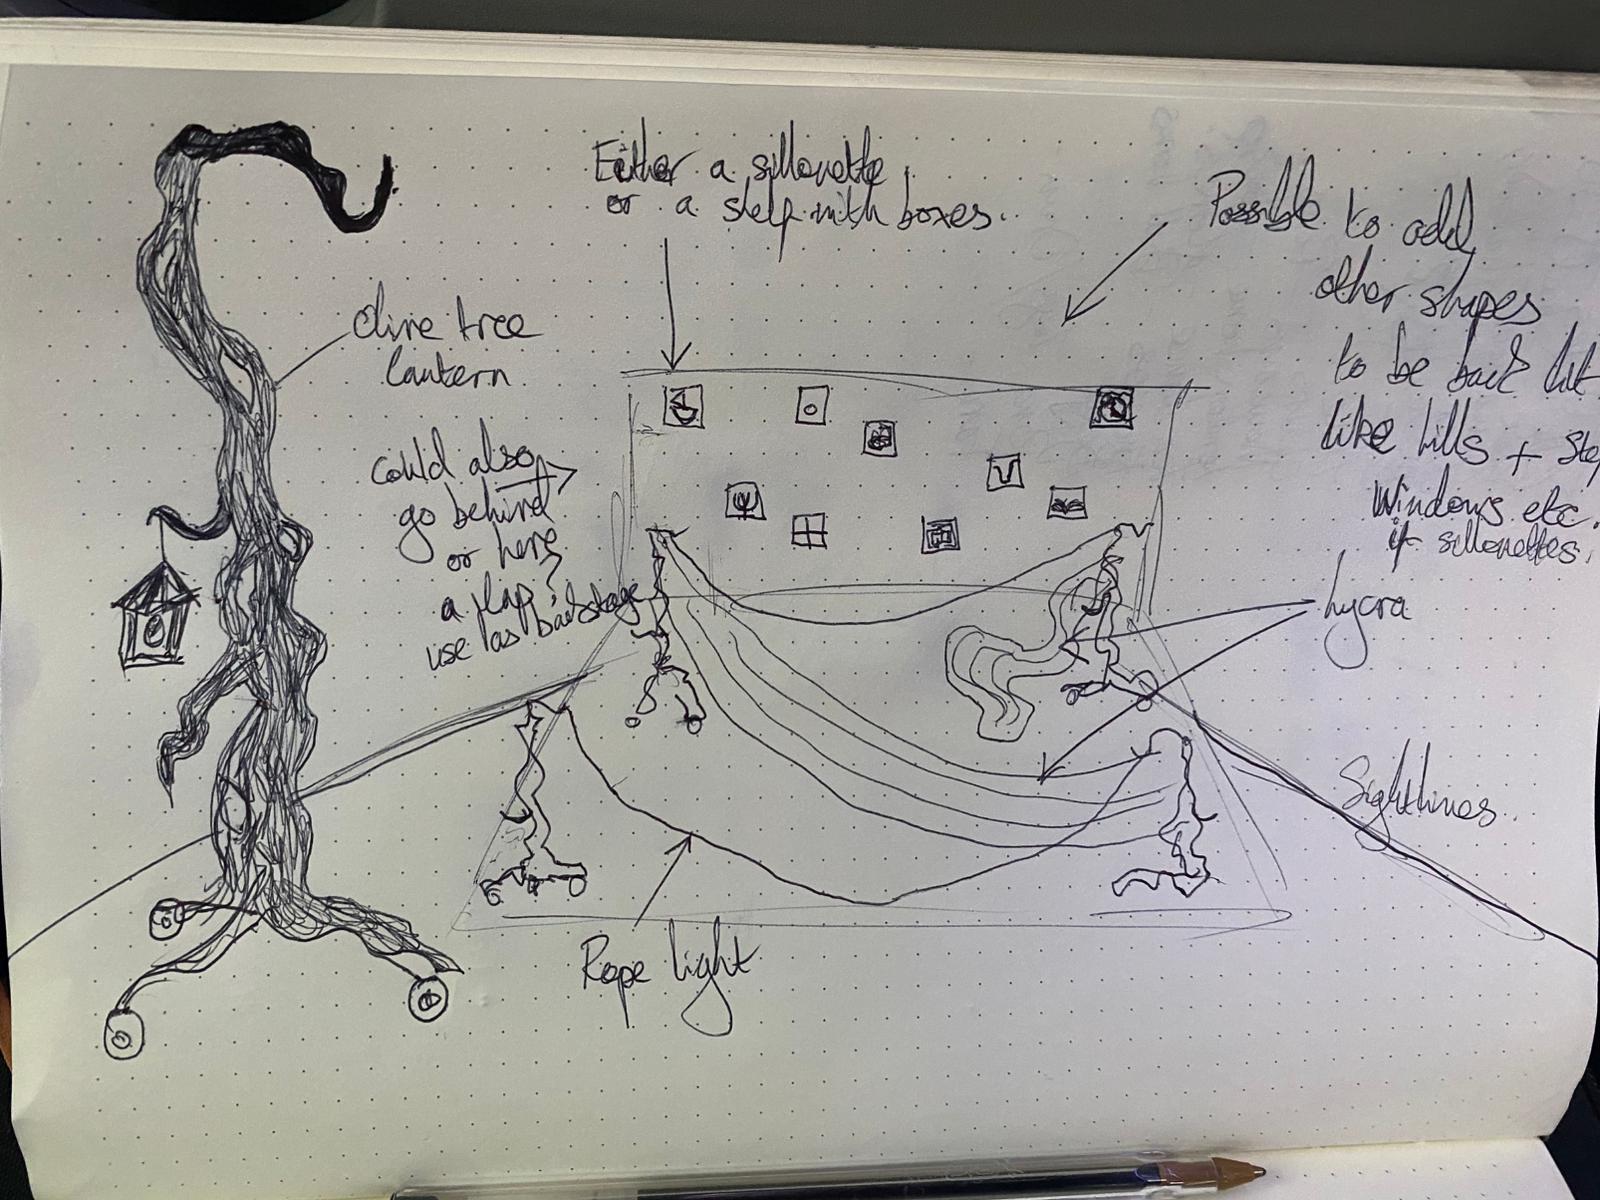 Either a sillouette
or a shelf with boxes.
Possible to add
other shapes
to be back lit
like hills + ste
windows etc.
if sillouettes.
olive tree
lantern.
could also
go behind
or here
a flap?
use as backstage
lycra
Sightlines.
Rope light